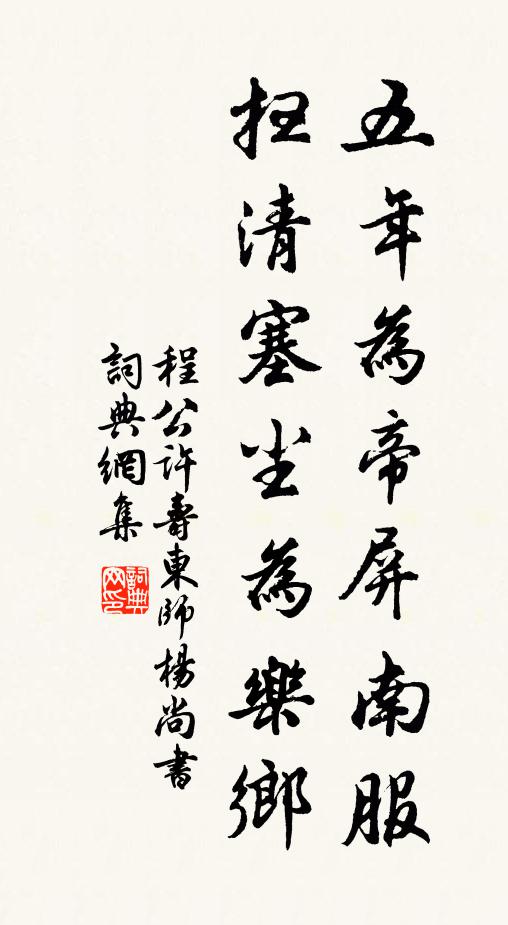 五年為帝屏南服
扫清塞尘為樂鄉
程公許壽東師楊尚書
詞典網集
詞典
网印